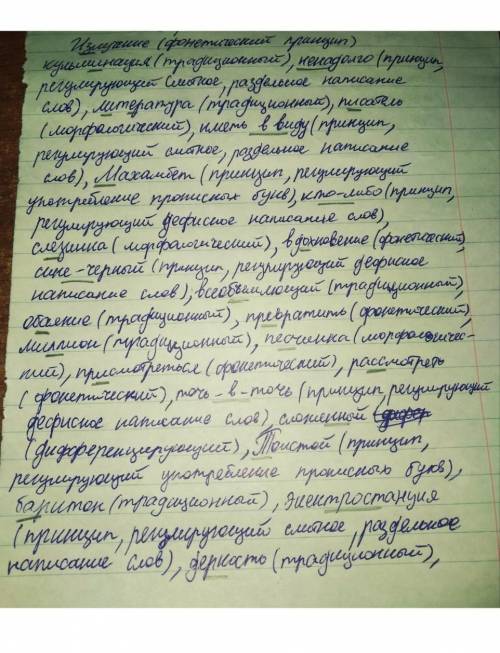 Излучение (фонетический принцип)
кульминация (традиционный), ненадолго (принцип,
регулирующий слитное, раздельное написание
слов), литература (традиционный), писатель
(морфологический), иметь в виду (принцип,
регулирующий слитное, раздельное написание
слов), Махамбет (принцип, регулирующий
употребление прописных букв), кто-либо (принцип,
регулирующий дефисное написание слов),
слезинка (морфологический), вдохновение (фонетический),
сине-черный (принцип, регулирующий дефисное
написание слов), всеобъемлющий (традиционный),
обаяние (традиционный), превратить (фонетический),
миллион (традиционный), песчинка (морфологичес-
кий), присмотреться (фонетический), рассмотреть
(фонетический), точь-в-точь (принцип, регулирующий
дефисное написание слов) сложенный
(дифференцирующий), Толстой (принцип,
регулирующий употребление прописных букв),
баритон (традиционный), электростанция
(принцип, регулирующий слитное, раздельное
написание слов), дерзость (традиционный),